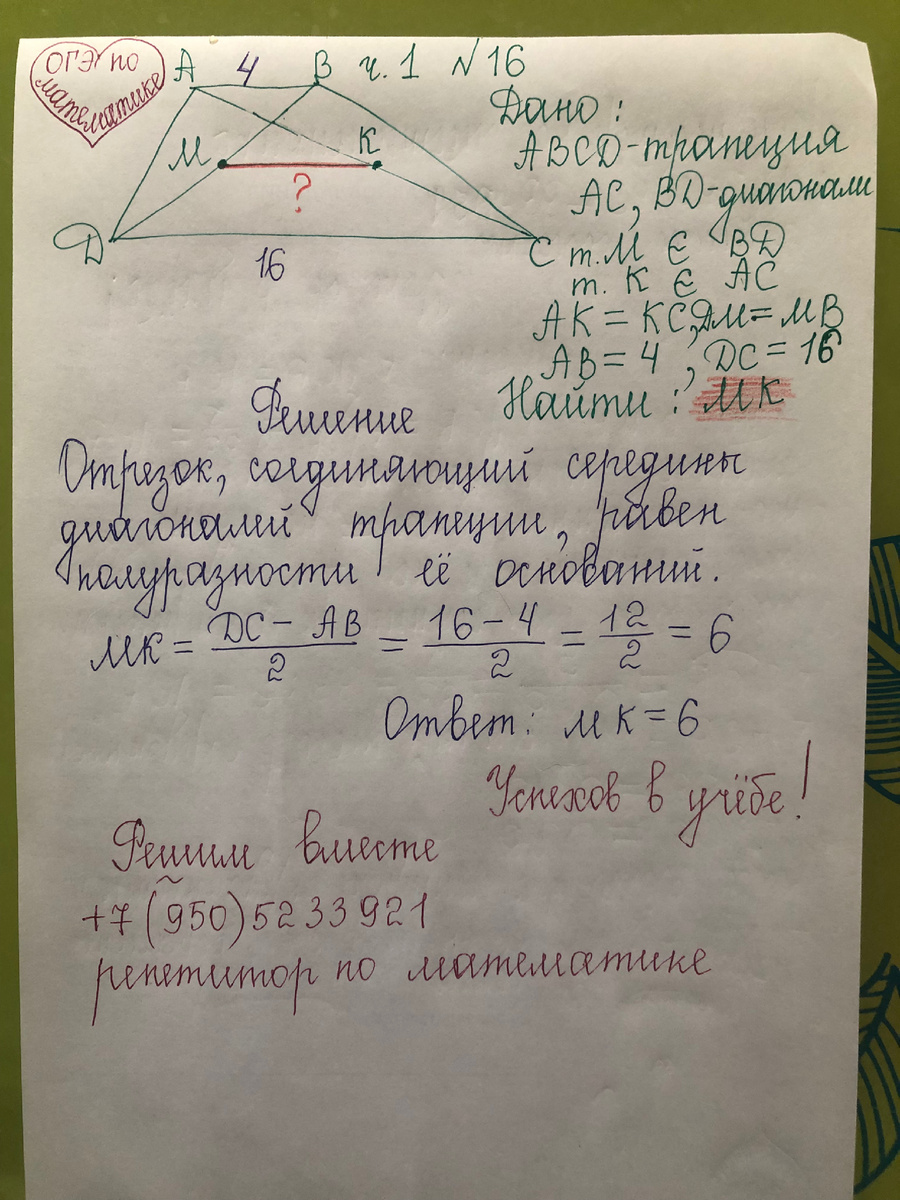 ОГЭ по
математике
А 4 В ч.1 №16
М К
?
D С
16
Дано:
ABCD-трапеция
AC, BD-диагонали
т.М Є BD
т. К Є AC
AK = KC, DM = MB
AB = 4, DC = 16
Найти: МК
Решение
Отрезок, соединяющий середины
диагоналей трапеции, равен
полуразности её оснований.
МК = DC - AB / 2 = 16 - 4 / 2 = 12 / 2 = 6
Ответ: МК = 6
Успехов в учёбе!
Решим вместе
~
+7(950)5233921
репетитор по математике